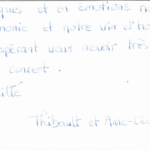 ques et en émotions n
monie et notre vin d'ho
spérant vous revoir très
concert.
Thibault et Anne-Léa